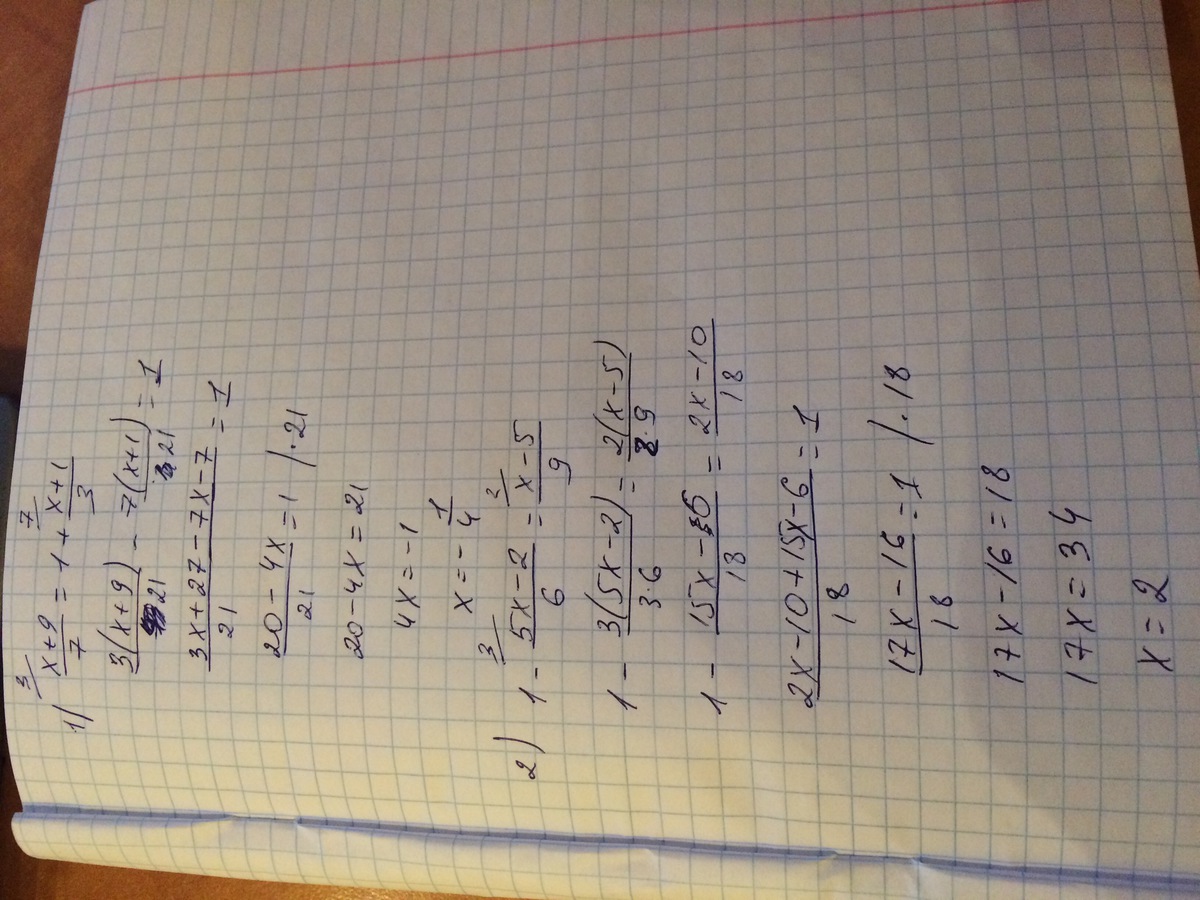 1) 3/ (x+9)/7 = 1 + 7/ (x+1)/3
3(x+9)/21 - 7(x+1)/21 = 1
(3x+27-7x-7)/21 = 1
(20-4x)/21 = 1 /·21
20-4x = 21
4x = -1
x = -1/4
2) 1 - 3/ (5x-2)/6 = 2/ (x-5)/9
1 - 3(5x-2)/(3·6) = 2(x-5)/(2·9)
1 - (15x-6)/18 = (2x-10)/18
(2x-10+15x-6)/18 = 1
(17x-16)/18 = 1 /·18
17x-16 = 18
17x = 34
x = 2